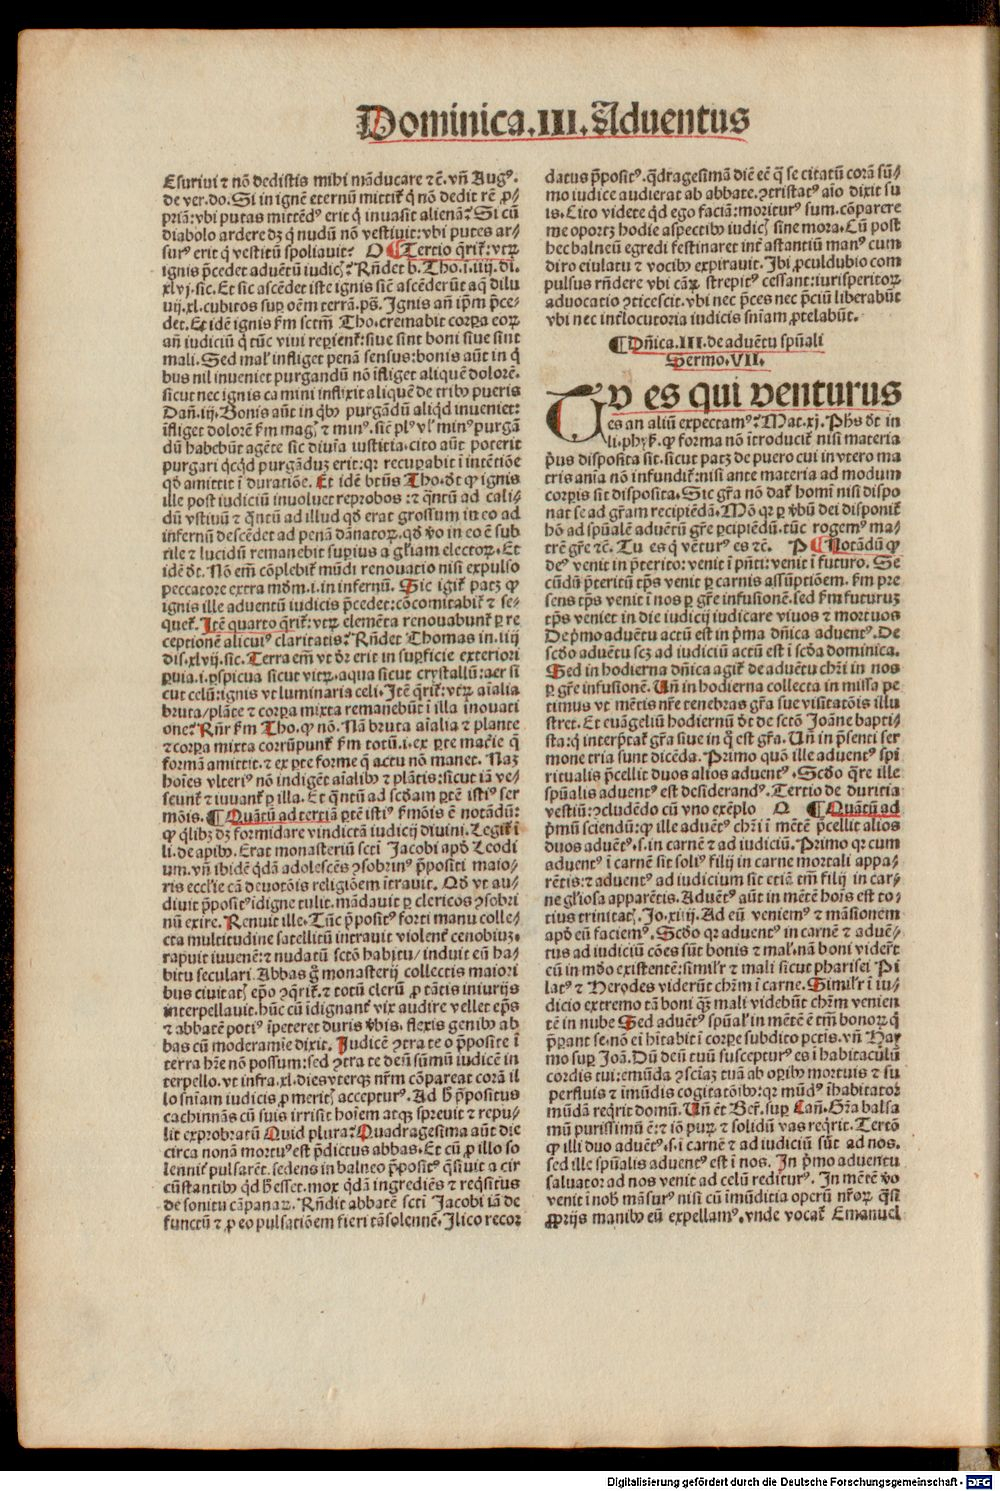 Dominica.III.Aduentus
Esuriui ⁊ nō dedistis mihi māducare ⁊c̄. vñ Augꝰ.
de ver.do. Si in ignē eternū mittit᷑ q̇ nō dedit rē ꝓ/
priā: vbi putas mittēdꝰ erit q̇ inuasit alienā? Si cū
diabolo ardere dꝫ q̇ nudū nō vestiuit: vbi putes ar/
surꝰ erit q̇ vestitū spoliauit? O ¶Tertio q̄rit᷑: vtꝝ
ignis p̄cedet aduētū iudicꝭ? Rñdet b. Tho.i.iiij.di.
xlvj.sic. Et sic ascēdet iste ignis sic̄ ascēderūt aq̄ dilu
uij.xl.cubitos suꝑ oēm terrā. pṡ. Ignis añ ip̄m p̄ce/
det. Et idē ignis ẜm sctm̄ Tho. cremabit corꝑa eoꝝ
añ iudiciū q̇ tūc viui reꝑient᷑: siue sint boni siue sint
mali. Sed malꝭ infliget penā sensus: bonis aūt in q̇
bus nil inueniet purgandū nō īfliget aliquē dolorē.
sicut nec ignis ca mini inflixit aliquē de tribꝰ pueris
Dañ.iij. Bonis aūt in q̇bꝰ purgādū aliqd inueniet:
īfliget dolorē ẜm magꝭ ⁊ minꝰ. sic̄ plꝰ vl' minꝰ purgā
dū habebūt agēte sic̄ diuīa iusticia. cito aūt poterit
purgari qcq̇d purgāduꝫ erit: qꝛ recuꝑabit ī intētiōe
qd̓ amittit ī duratiōe. Et idē btūs Tho. dt̓ ꝙ ignis
ille post iudiciū inuoluet reprobos: ⁊ q̄ntū ad cali/
dū vstiuū ⁊ q̄ntū ad illud qd̓ erat grossum in eo ad
infernū descēdet ad penā dānatoꝝ. qd̓ vo in eo ē sub
tile ⁊ lucidū remanebit suꝑius a gl'iam electoꝝ. Et
idē dt̓. Nō em̄ cōplebit᷑ mūdi renouatio nisi expulso
peccatore extra mdm̄.i.in infernū. Sic igit᷑ patꝫ ꝙ
ignis ille aduentū iudicis p̄cedet: cōcomitabit᷑ ⁊ se/
quet᷑. Itē quarto q̄rit᷑: vtꝝ elemēta renouabunt᷑ ꝑ re
ceptionē alicuiꝰ claritatis? Rñdet Thomas in.iiij
dis.xlvij.sic. Terra em̄ vt dr̄ erit in suꝑficie exteriori
ꝑuia.i.ꝑspicua sicut vitꝝ. aqua sicut crystallū: aer si
cut celū: ignis vt luminaria celi. Itē q̄rit᷑: vtꝝ aīalia
bruta/plāte ⁊ corꝑa mixta remanebūt ī illa inouati
one? Rñr ẜm Tho. ꝙ nō. Nā bruta aīalia ⁊ plante
⁊ corꝑa mixta corrūpunt᷑ ẜm totū.i.ex ꝑte matīe q̄
formā amittit. ⁊ ex ꝑte forme q̄ actu nō manet. Naꝫ
hoīes vlteriꝰ nō indigēt aīalibꝰ ⁊ plātis: sicut iā ve/
scunt᷑ ⁊ iuuant᷑ ꝑ illa. Et q̄ntū ad scdam ꝑtē istiꝰ ser
mōis. ¶Quātū ad tertiā ꝑtē istiꝰ ẜmōis ē notādū:
ꝙ q̇libꝫ dꝫ formidare vindictā iudicij diuini. Legit᷑ ī
li.de apibꝰ. Erat monasteriū scti Jacobi apd̓ Leodi
um. vñ ibidē q̇dā adolescēs ꝯsobrinꝰ p̄positi maio/
ris eccl'ie cā deuotōis religiōem ītrauit. Qd̓ vt au/
diuit p̄positꝰ īdigne tulit. mādauit ꝑ clericos ꝯsobri
nū exire. Renuit ille. Tūc p̄positꝰ forti manu colle/
cta multitudine satellitū intrauit violent᷑ cenobiuꝫ.
rapuit iuuenē: ⁊ nudatū sctō habitu/induit eū ha/
bitu seculari. Abbas g̊ monasterij collectis maiori
bus ciuitatꝭ ep̄o ꝯq̄rit᷑. ⁊ totū clerū ꝓ tātis iniurijs
interpellauit. hūc cū īdignant᷑ vix audire vellet ep̄s
⁊ abbatē potiꝰ īpeteret duris v̓bis. flexis genibꝰ ab
bas cū moderamīe dixit. Judicē ꝯtra te o p̄posite ī
terra hr̄e nō possum: sed ꝯtra te deū sūmū iudicē in
terpello. vt infra.xl.dies vterqꝫ nr̄m cōpareat corā il
lo sñiam iudicis ꝓ meritꝭ accepturꝰ. Ad h̄ p̄positus
cachinnās cū suis irrisit hoīem atqꝫ spreuit ⁊ repu/
lit exprobratū Quid plura? Quadragesima aūt die
circa nonā mortuꝰ est p̄dictus abbas. Et cū ꝓ illo so
lennit᷑ pulsarēt. sedens in balneo p̄positꝰ q̄siuit a cir
cūstantibꝰ qd h̄ esset. mox q̇dā ingrediēs ⁊ reqsitus
de sonitu cāpanaꝝ. Rñdit abbatē scti Jacobi iā de
functū ⁊ ꝓ eo pulsatiōem fieri tā solennē. Ilico recor
datus p̄positꝰ. q̄dragesimā diē eē q̄ se citatū corā sū/
mo iudice audierat ab abbate. ꝯtristatꝰ aīo dixit su
is. Cito videte qd ego faciā: moriturꝰ sum. cōparere
me oportꝫ hodie aspectibꝰ iudicꝭ sine mora. Cū post
hec balneū egredi festinaret int᷑ astantiū manꝰ cum
diro eiulatu ⁊ vocibꝰ expirauit. Ibi ꝓculdubio com
pulsus rñdere vbi cāꝝ strepitꝰ cessant: iurisperitoꝝ
aduocatio ꝯticescit. vbi nec p̄ces nec p̄ciū liberabūt
vbi nec int᷑locutoria iudicis sñiam ꝓtelabūt.
¶Dñica.III.de aduētu spūali
Sermo.VII.
TV es qui venturus
es an aliū expectamꝰ? Mat.xj. Ph̄s dt̓ in
li.phẏ. ꝙ forma nō ītroducit᷑ nisi materia
p̄us disposita sit. sicut patꝫ de puero cui in vtero ma
tris anīa nō infundit᷑: nisi ante materia ad modum
corꝑis sit disposita. Sic grā nō dat᷑ homī nisi dispo
nat se ad grāꝫ recipiēdā. Mō qꝛ ꝑ v̓bū dei disponit᷑
hō ad spūalē aduētū grē ꝑcipiēdū. tūc rogemꝰ ma/
trē grē ⁊c̄. Tu es q̇ vēturꝰ es ⁊c̄. P ¶Notādū ꝙ
deꝰ venit in p̄terito: venit ī pn̄ti: venit ī futuro. Se
cūdū p̄teritū tp̄s venit ꝑ carnis assūptiōem. ẜm pre
sens tp̄s venit ī nos ꝑ grē infusionē. sed ẜm futuruꝫ
tp̄s veniet in die iudicij iudicare viuos ⁊ mortuos
De pͥmo aduētu actū est in pͥma dñica aduentꝰ. De
scdo aduētu scꝫ ad iudiciū actū est ī scda dominica.
Sed in hodierna dñica agit᷑ de aduētu chr̄i in nos
ꝑ grē infusionē. Uñ in hodierna collecta in missa pe
timus vt mētis nr̄e tenebras grā sue visitatōis illu
stret. Et euāgeliū hodiernū dt̓ de sctō Joāne bapti/
sta: q̇ interp̄tat᷑ grā siue in q̇ est grā. Uñ in p̄senti ser
mone tria sunt dicēda. Primo quō ille aduentꝰ spi
ritualis p̄cellit duos alios aduentꝰ. Scdo q̄re ille
spūalis aduentꝰ est desiderandꝰ. Tertio de duritia
vestiū: ꝯcludēdo cū vno exēplo Q ¶Quātū ad
pͥmū sciendū: ꝙ ille aduētꝰ chr̄i ī mētē p̄cellit alios
duos aduētꝰ.s.in carnē ⁊ ad iudiciū. Primo qꝛ cum
aduentꝰ ī carnē sit soliꝰ filij in carne mortali appa/
rētis: ⁊ aduentꝰ ad iudicium sit etiā tm̄ filij in car/
ne gl'iosa apparētis. Aduētꝰ aūt in mētē hoīs est to/
tius trinitatꝭ. Jo.xiiij. Ad eū veniemꝰ ⁊ māsionem
apd̓ eū faciemꝰ. Scdo qꝛ aduentꝰ in carnē ⁊ aduē/
tus ad iudiciū cōes sūt bonis ⁊ malꝭ. nā boni viderūt
eū in mdo existentē: simil'r ⁊ mali sicut pharisei Pi
latꝰ ⁊ Herodes viderūt chr̄m ī carne. Simil'r ī iu/
dicio extremo tā boni qꝫ mali videbūt chr̄m venien
tē in nube Sed aduētꝰ spūal' in mētē ē tm̄ bonoꝝ q̇
p̄parant se. nō ei habitat ī corꝑe subdito pctīs. vñ Hay
mo suꝑ Joā. Dū deū tuū suscepturꝰ es ī habitaculū
cordis tui: emūda ꝯsciaꝫ tuā ab oꝑibꝰ mortuis ⁊ su
perfluis ⁊ īmūdis cogitatōibꝰ: qꝛ mūdꝰ īhabitator
mūdā reqͥrit domū. Uñ ēt Ber̄. suꝑ Cañ. Grā balsa
mū purissimū ē: ⁊ iō puꝝ ⁊ solidū vas reqͥrit. Tertō
ꝙ illi duo aduētꝰ.s.i carnē ⁊ ad iudiciū sūt ad nos.
sed ille spūalis aduentꝰ est ī nos. In pͥmo aduentu
saluator ad nos venit ad celū rediturꝰ. In mētē vo
venit ī nob̄ māsurꝰ nisi cū īmūditia operū nr̄oꝝ q̄si
ꝓprijs manibꝰ eū expellamꝰ. vnde vocat᷑ Emanuel
Digitalisierung gefördert durch die Deutsche Forschungsgemeinschaft - DFG